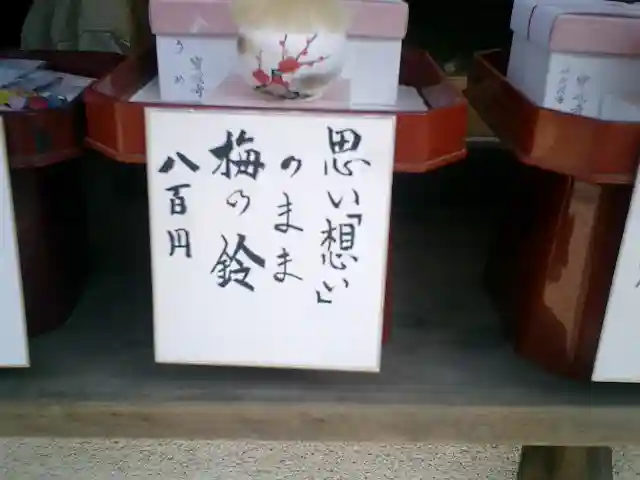 思い「想い」
のまま
梅の鈴
八百円
うめ